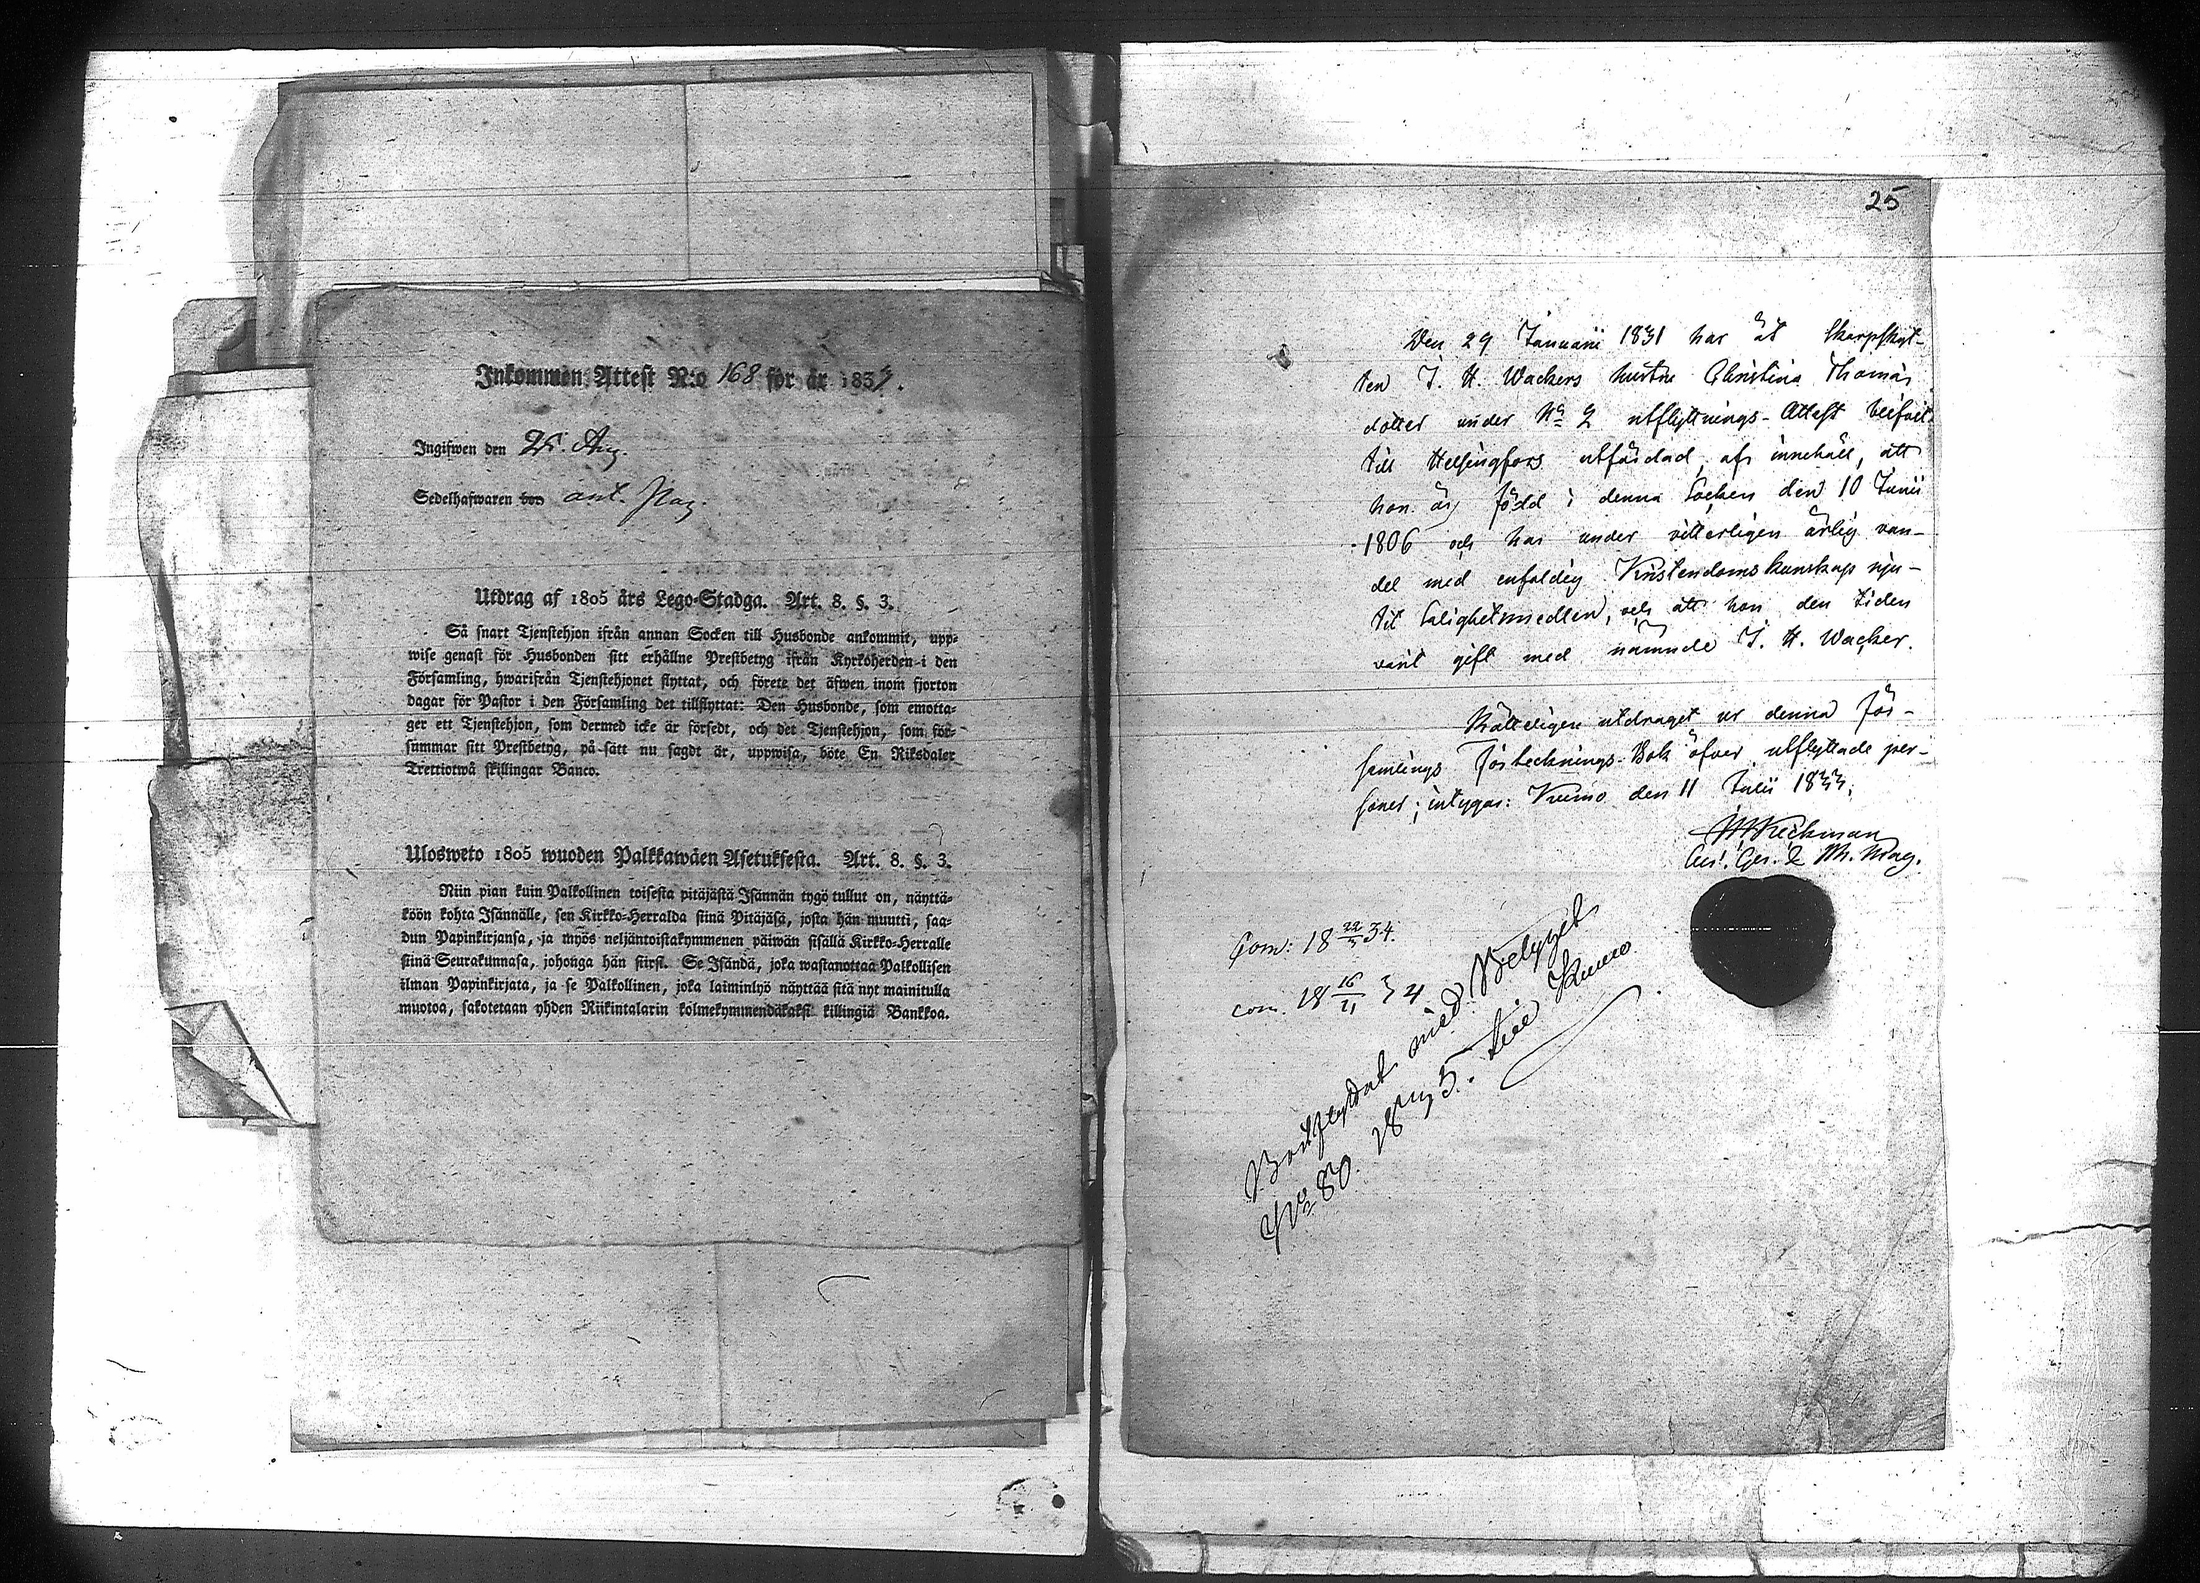 Inkommen Attest N:o 168 för år 183
Ingifwen den 25. Aug.
Sedelhafwaren von ant.
Utdrag af 1805 års Lego-Stadga. Art. 8. §. 3.
Så snart Tjenstehjon ifrån annan Socken till Husbonde ankommit, upp-
wise genast för Husbonden sitt erhållne Prestbetyg ifrån Kyrkoherden i den
Församling, hwarifrån Tjenstehjonet flyttat, och förete det äfwen inom fjorton
dagar för Pastor i den Församling det tillflyttat: Den Husbonde, som emotta-
ger ett Tjenstehjon, som dermed icke är försedt, och det Tjenstehjon, som för-
summar sitt Prestbetyg, på sätt nu sagdt är, uppwisa, böte En Riksdaler
Trettiotwå skillingar Banco.
Ulosweto 1805 wuoden Palkkawäen Asetuksesta. Art. 8. §. 3.
Niin pian kuin Palkollinen toisesta pitäjästä Isännän tygö tullut on, näyttä-
köön kohta Isännälle, sen Kirkko-Herralda siinä Pitäjäsä, josta hän muutti, saa-
dun Papinkirjansa, ja myös neljäntoistakymmenen päiwän sisällä Kirkko-Herralle
siinä Seurakunnasa, johonga hän siirsi. Se Isändä, joka wastanottaa Palkollisen
ilman Papinkirjata, ja se Palkollinen, joka laiminlyö näyttää sitä nyt mainitulla
muotoa, sakotetaan yhden Riikintalarin kolmekymmendäkaksi killingiä Bankkoa.
25
Den 29 Januarii 1831 har åt Skarpskyt-
ten J. H. Wackers hustru Christina Thomas
dotter under No 2 utflyttnings-Attest blifvit
till Helsingfors utfärdad, af innehåll, att
hon är född i denna Socken den 10 Junii
1806 och har under vitterligen ärlig van-
del med enfaldig Kristendomskunskap nju-
tit Salighetsmedlen, och att hon den tiden
varit gift med nämnde J. H. Wacker.
Rätteligen utdraget ur denna För-
samlings Förtecknings-Bok öfver utflyttade per-
soner; intygar: Kumo den 11 Julii 1833.
Keckman
Com: 18 22/3 34.
com. 18 16/11 34
Bortflyttat med Betyget
No 80. 18 5. till Kumo